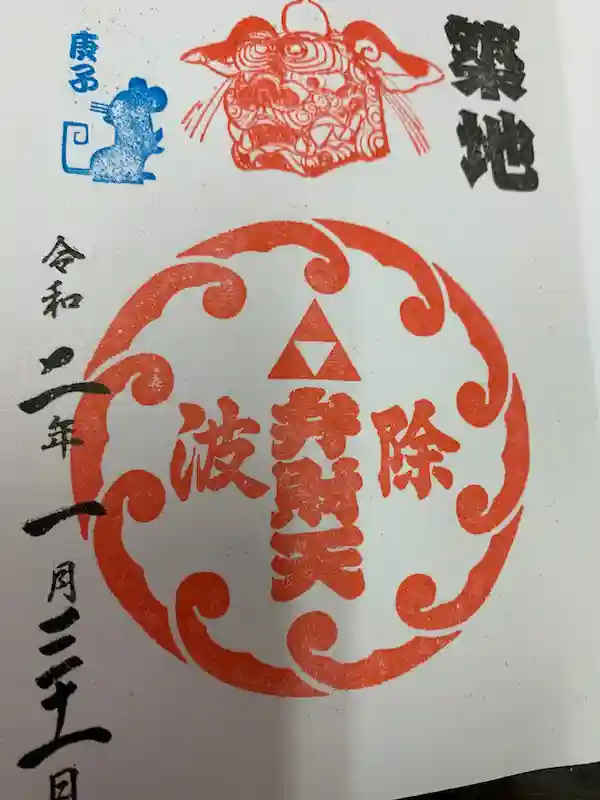 築地
除波
弁財天
庚子
令和二年一月三十一日